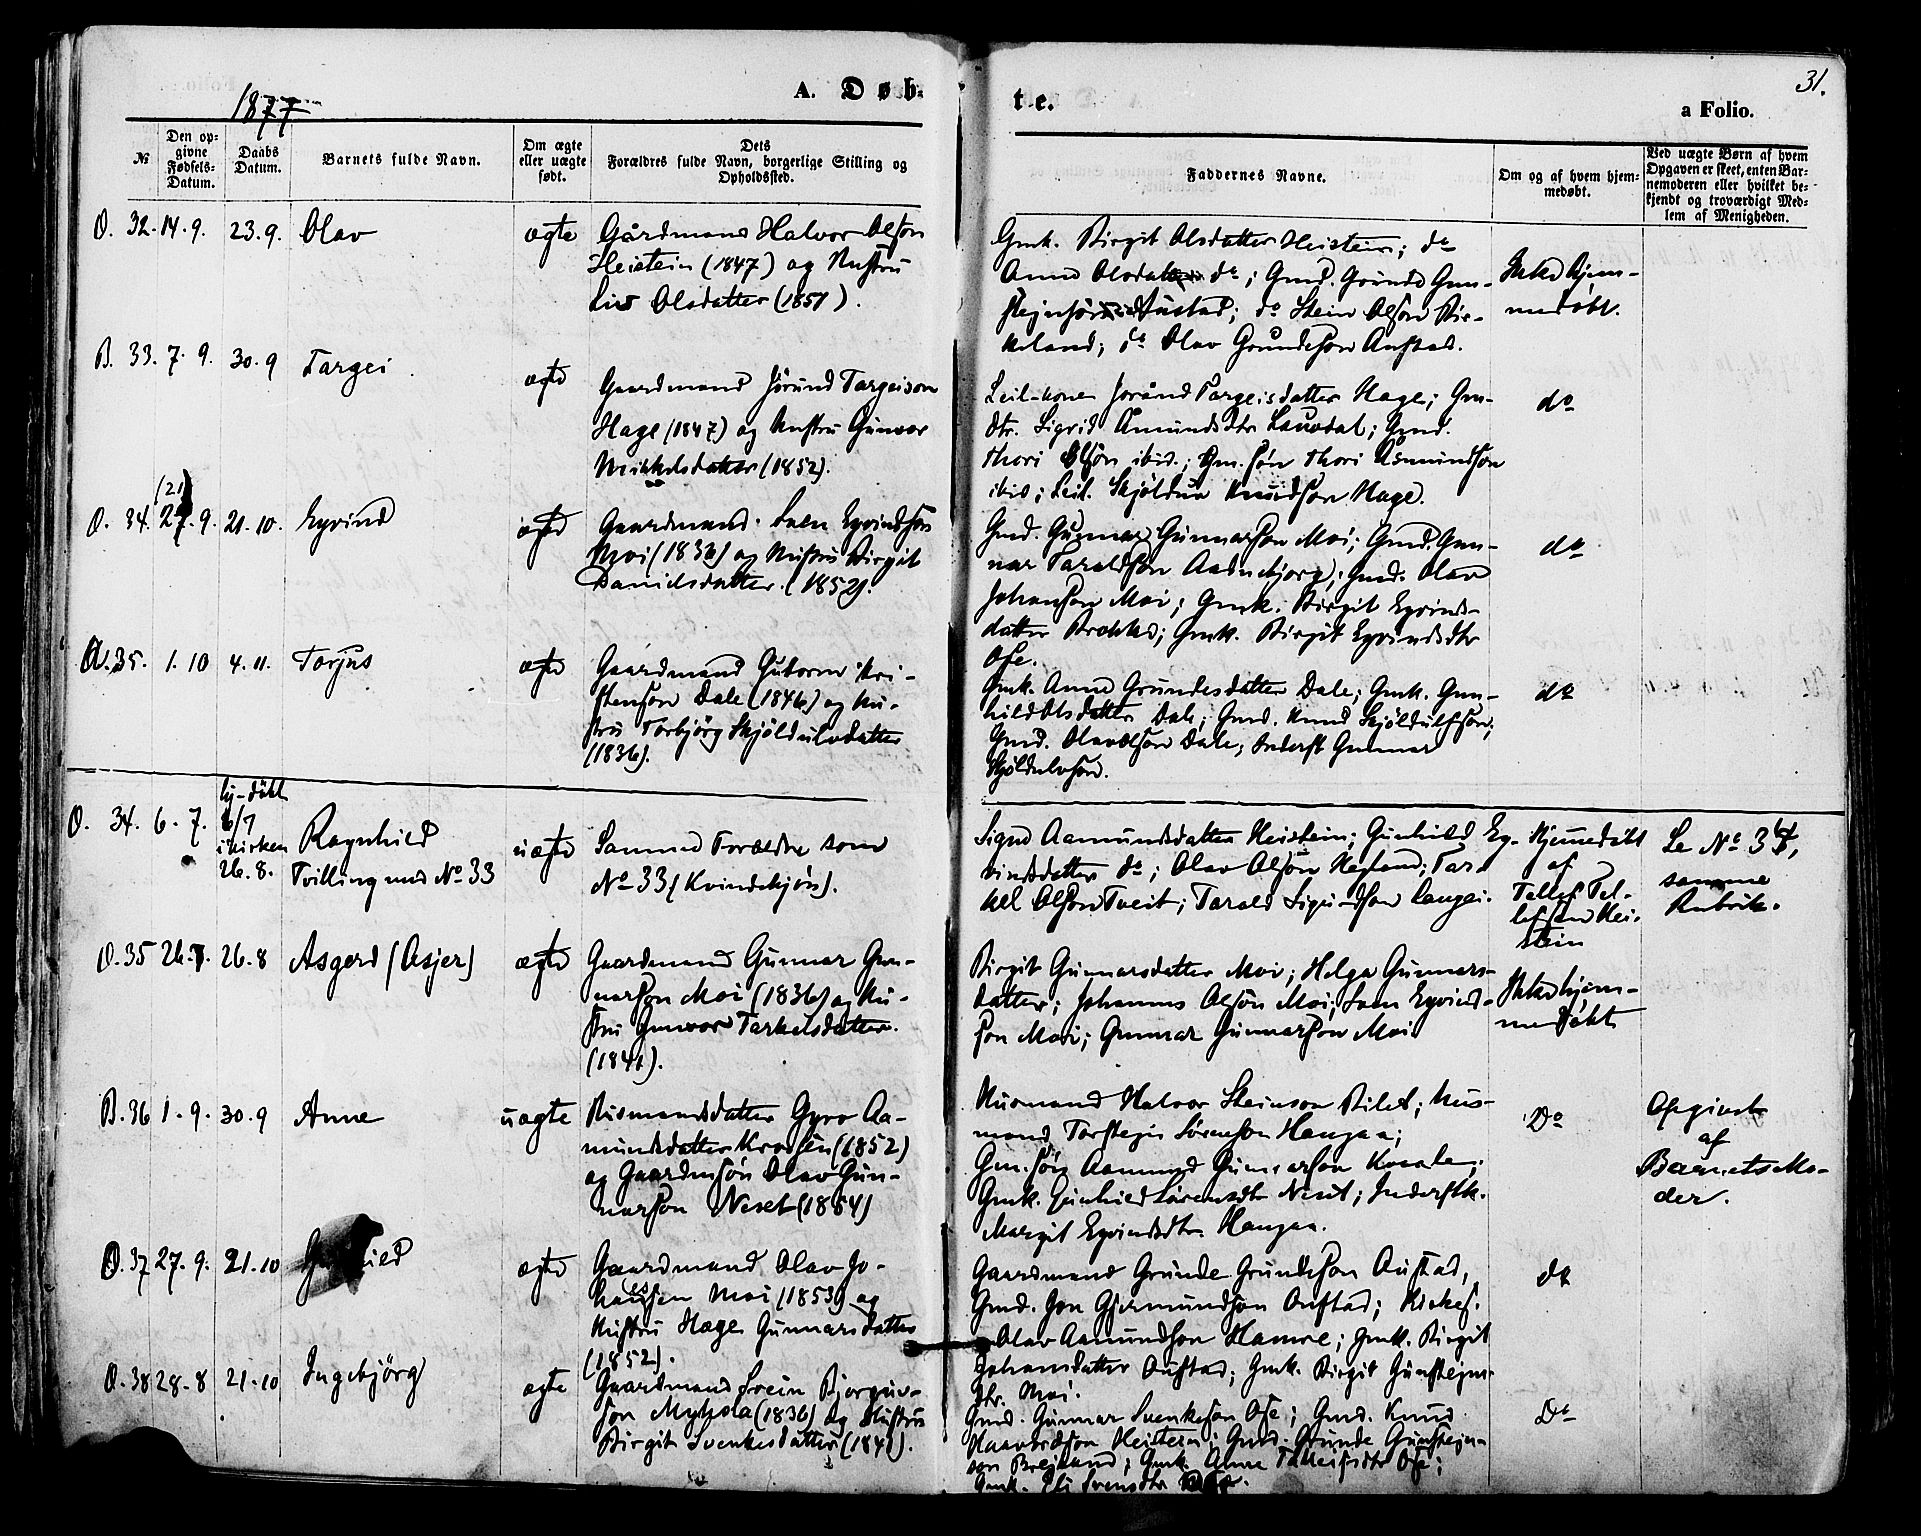 1877
A. Døb-
te.
a Folio.
31.
№
Den op-
givne
Fødsels-
Datum.
Daabs
Datum.
Barnets fulde Navn.
Om ægte
eller uægte
født.
Dets
Forældres fulde Navn, borgerlige Stilling og
Opholdssted.
Faddernes Navne.
Om og af hvem hjem-
medøbt.
Ved uægte Børn af hvem
Opgaven er skeet, enten Bar-
nemoderen eller hvilket be-
kjendt og troværdigt Med-
lem af Menigheden.
O. 32. 14. 9. 23. 9. Olav ægte
Gårdmand Halvor Olson
Heistein (1847) og Hustru
Liv Olsdatter (1851).
Gmk. Birgit Olsdatter Heistein; do
Anne Olsdatter do; Gmd. Grunde Gun-
stejnsön Austad; do Stein Olson Bir-
keland; do Olav Grundeson Austad.
Ikke hjem-
medöbt.
B. 33. 7. 9. 30. 9 Targei ægte
Gaardmand Jörund Targeison
Hage (1847) og Hustru Gunvor
Mikkelsdatter (1852).
Leil-kone Joränd Targeisdatter Hage; Gm-
dtr. Sigrid Åmundsdtr Lauvdal; Gmd.
Thori Olsön ibid.; Gm. sön Thori Asmundson
ibid; Leil. Skjöldun Knudson Hage.
do
O. 34. (21) 27. 9. 21. 10. Eyvind ægte
Gaardmand Svein Eyvindson
Moi (1836) og Hustru Birgit
Danielsdatter. (1852).
Gmd. Gunnar Gunnarson Moi; Gmd. Gun-
nar Taraldson Aadnebjorg; Gmd. Olav
Johanson Moi; Gmk. Birgit Eyvinds-
datter Brokke; Gmk. Birgit Eyvindsdtr
Ose.
do
O. 35. 1. 10 4. 11. Torjus ægte
Gaardmand Gutorm Kri-
stenson Dale (1846) og Hu-
stru Torbjörg Skjöldulvdatter
(1836).
Gmk. Anne Grundesdatter Dale; Gmk. Gun-
hild Olsdatter Dale; Gmd. Knud Skjöldulfson;
Gmd. Olav Olson Dale; Inderst Gunnar
Skjöldulvson.
do
O. 34. 6. 7. hj-döbt
6/7
i Kirken
26. 8. Ragnhild
Tvilling med No 33 uægte
Samme Forældre som
No 33 (Kvindekjön).
Signe Aamundsdatter Heistein; Gunhild Ey-
vindsdatter do; Olav Olsön Hegland; Tar-
kel Olson Tveit; Tarald Sigurdson Langei.
Hjemmedöbt
af
Tellef Tel-
lefsen Hei-
stein
Se No 34,
samme
Rubrik.
O. 35 26. 7. 26. 8 Asgerd (Asjer) ægte
Gaardmand Gunnar Gun-
narson Moi (1836) og Hu-
stru Gunvor Tarkelsdatter.
(1841).
Birgit Gunnarsdatter Moi; Helga Gunnars-
datter; Johannes Olsön Moi; Svein Eyvind-
son Moi; Gunnar Gunnarson Moi
Ikke hjem-
medöbt
B. 36 1. 9. 30. 9 Anne uægte
Husmandsdatter Gyro Aa-
mundsdatter (1852)
og Gaardmsön Olav Gun-
narson Neset (1854)
Husmand Halvor Steinson; Hus-
mand Torstejn Sörenson Haugaa;
Gm. sön Aamund Gunnarson;
Gmk. Gunhild Sörensdtr Neset; Inderstk.
Margit Eyvindsdtr Haugaa.
Do
Opgivet
af
Barnets Mo-
der.
O. 37 27. 9. 21. 10 ægte
Gaardmand Olav Jo-
hansen Moi (1853) og
Hustru Hage Gunnarsdatter
(1852).
Gaardmand Grunde Grundeson Austad,
Gmd. Jon Gjermundson Austad; Kirkes.
Olav Aamundson Hamre; Gmk. Birgit
Johansdatter Austad; Gmk. Birgit Gunstejns-
dtr. Moi.
do
O. 38 28. 8 21. 10 Ingebjörg ægte
Gaardmand Svein Bjorgulv-
son (1836) og Hustru
Birgit Svenkesdatter (1841).
Gmd. Gunnar Svenkeson Ose; Gmd. Knud
Haavardson Heistein; Gmd. Grunde Gunstejn-
son; Gmk. Anne Ose;
Gmk. Svensdtr Ose.
Do